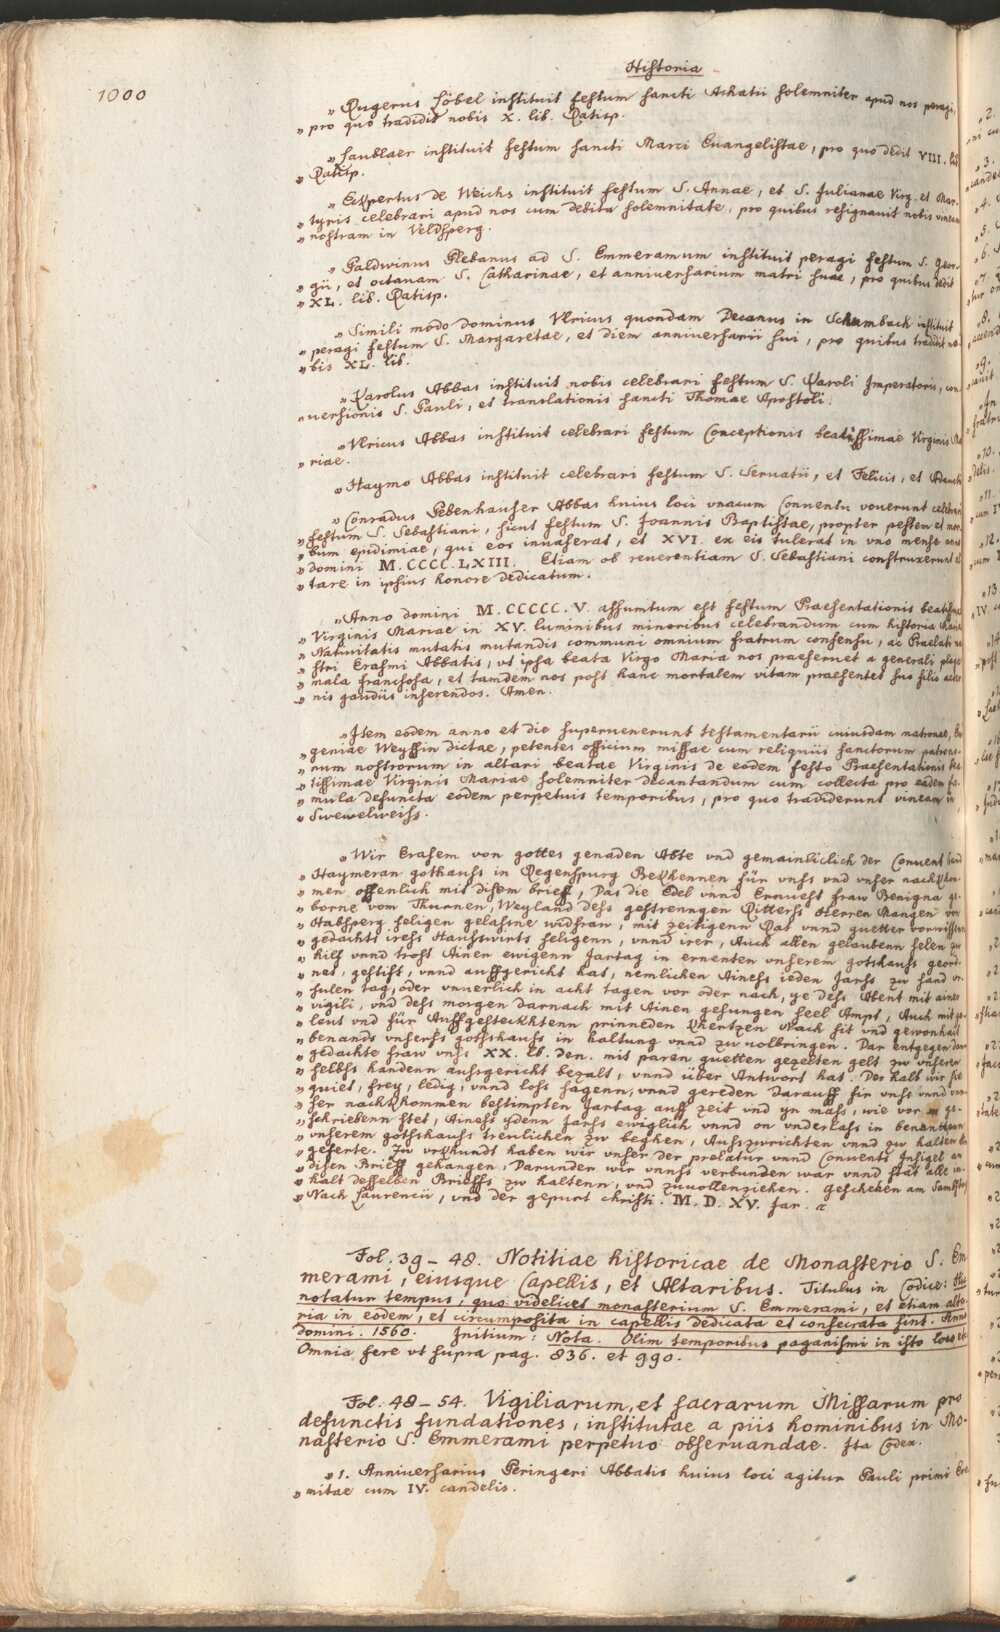 Historia
1000
„ Rugerus Löbel instituit festum sancti Achatii solemniter apud nos peragi,
„ pro quo tradidit nobis X. lib. Ratisp.
„ Saublaer instituit festum sancti Marci Euangelistae, pro quo dedit VIII. lib.
„ Ratisp.
„ Eckpertus de Weichs instituit festum S. Annae, et S. Julianae Virg. et Mar-
„ tyris celebrari apud nos cum debita solemnitate, pro quibus resignauit nobis vineam
„ nostram in Veldsperg.
„ Paldwinus Plebanus ad S. Emmeramum instituit peragi festum S. Geor-
„ gii, et octauam S. Catharinae, et anniuersarium matri suae, pro quibus dedit
„ XL. lib. Ratisp.
„ Simili modo dominus Vlricus quondam Decanus in Schambach instituit
„ peragi festum S. Margaretae, et diem anniuersarii sui, pro quibus tradidit no-
„ bis XL. lib.
„ Karolus Abbas instituit nobis celebrari festum S. Karoli Imperatoris, con-
„ uersionis S. Pauli, et translationis sancti Thomae Apostoli.
„ Vlricus Abbas instituit celebrari festum Conceptionis beatissimae Virginis Ma
„ riae.
„ Haymo Abbas instituit celebrari festum S. Seruatii, et Felicis, et Adaucti
„ Conradus Pebenhauser Abbas huius loci vnacum Conuentu vouerunt celebrari
„ festum S. Sebastiani, sicut festum S. Joannis Baptistae, propter pestem et mor-
„ bum epidimiae, qui eos inuaserat, et XVI. ex eis tulerat in vno mense anno
„ domini M.CCCC.LXIII. Etiam ob reuerentiam S. Sebastiani construxerunt al
„ tare in ipsius honore dedicatum.
„ Anno domini M.CCCCC.V. assumtum est festum Praesentationis beatissimae
„ Virginis Mariae in XV. luminibus minoribus celebrandum cum historia
„ Natiuitatis mutatis mutandis communi omnium fratrum consensu, ac Praelati no
„ stri Erasmi Abbatis, vt ipsa beata Virgo Maria nos praeseruet a generali plaga
„ mala franchosa, et tamdem nos post hanc mortalem vitam praesentet suo filio aeter
„ nis gaudiis inserendos. Amen.
„ Item eodem anno et die superuenerunt testamentarii cuiusdam matronae, Eu
„ geniae Weyssin dictae, petentes officium missae cum reliquiis sanctorum patrono-
„ rum nostrorum in altari beatae Virginis de eodem festo Praesentationis bea
„ tissimae Virginis Mariae solemniter decantandum cum collecta pro eadem fa-
„ mula defuncta eodem perpetuis temporibus, pro quo tradiderunt vineam in
„ Swewelweiss.
„ Wir Erasem von gottes genaden Abte vnd gemainliclich der Conuent sand
„ Haymeran gothauss in Regenspurg Bekhennen für vnss vnd vnser nachkhom-
„ men offenlich mit disem brief, Das die Edel vnnd Ernuest fraw Benigna ge-
„ borne vom Thurnen, Weyland dess gestrenngen Ritterss Herren Mangen von
„ Habsperg seligen gelassne widfraw, mit zeitigenn Rat vnnd guetter vorwissen
„ gedachts iress Hausswirts seligenn, vnnd irer, Auch allen gelaubenn selen zu
„ hilf vnnd trost Ainen ewigenn Jartag in ernenten vnserem gotshauss geord-
„ net, gestift, vnnd auffgericht hat, nemlichen Ainess ieden Jarss zu sand vr-
„ sulen tag, oder vnuerlich in acht tagen vor oder nach, ye dess Abent mit ainer
„ vigili, vnd dess morgen darnach mit Ainen gesungen seel Ampt, Auch mit ge-
„ leut vnd für Auffgesteckhtenn prinneden khertzen Nach sit vnd gewonhait
„ benands vnserss gotsshauss in haltung vnnd zu volbringen. Dar entgegen dann
„ gedachte fraw vnss XX. lb. den. mit paren guetten gezelten gelt zu vnseren
„ selbss handenn aussgericht bezalt, vnnd über Antwort hat. Des halb wir sie
„ quiet, frey, ledig, vnnd loss sagenn, vnnd gereden darauff für vnss vnnd vn-
„ ser nachkhommen bestimpten Jartag auff zeit vnd yn mass, wie vor ge-
„ schriebenn stet, Ainess ydenn Jarss ewiglich vnnd on vnderlass in benanthenn
„ vnserem gotsshauss treulichen zu beghen, Ausszurichten vnnd zu halten on
„ geferte. Zu vrkhundt haben wir vnser der prelatur vnnd Conuents Insigel an
„ disen Brieff gehangen, Darunder wir vnnss verbunden war vnnd stät alle in-
„ halt desselben Brieffs zu haltenn, vnd zuuollenziehen. Geschehen am Sambstag
„ Nach Laurencii, vnd der gepurt christi. M.D.XV. Jar.
Fol. 39 – 48. Notitiae historicae de Monasterio S. Em
merami, eiusque Capellis, et Altaribus. Titulus in Codice: Hic
notatur tempus, quo videlicet monasterium S. Emmerami, et etiam alta-
ria in eodem, et circumposita in capellis dedicata et consecrata sint. Anno
domini. 1560. Initium: Nota. Olim temporibus paganismi in isto loco etc
Omnia fere vt supra pag. 836. et 990.
Fol. 48 – 54. Vigiliarum, et sacrarum Missarum pro
defunctis fundationes, institutae a piis hominibus in Mo-
nasterio S. Emmerami perpetuo obseruandae. Ita Codex.
„ 1. Anniuersarius Peringeri Abbatis huius loci agitur Pauli primi Ere
„ mitae cum IV. candelis.